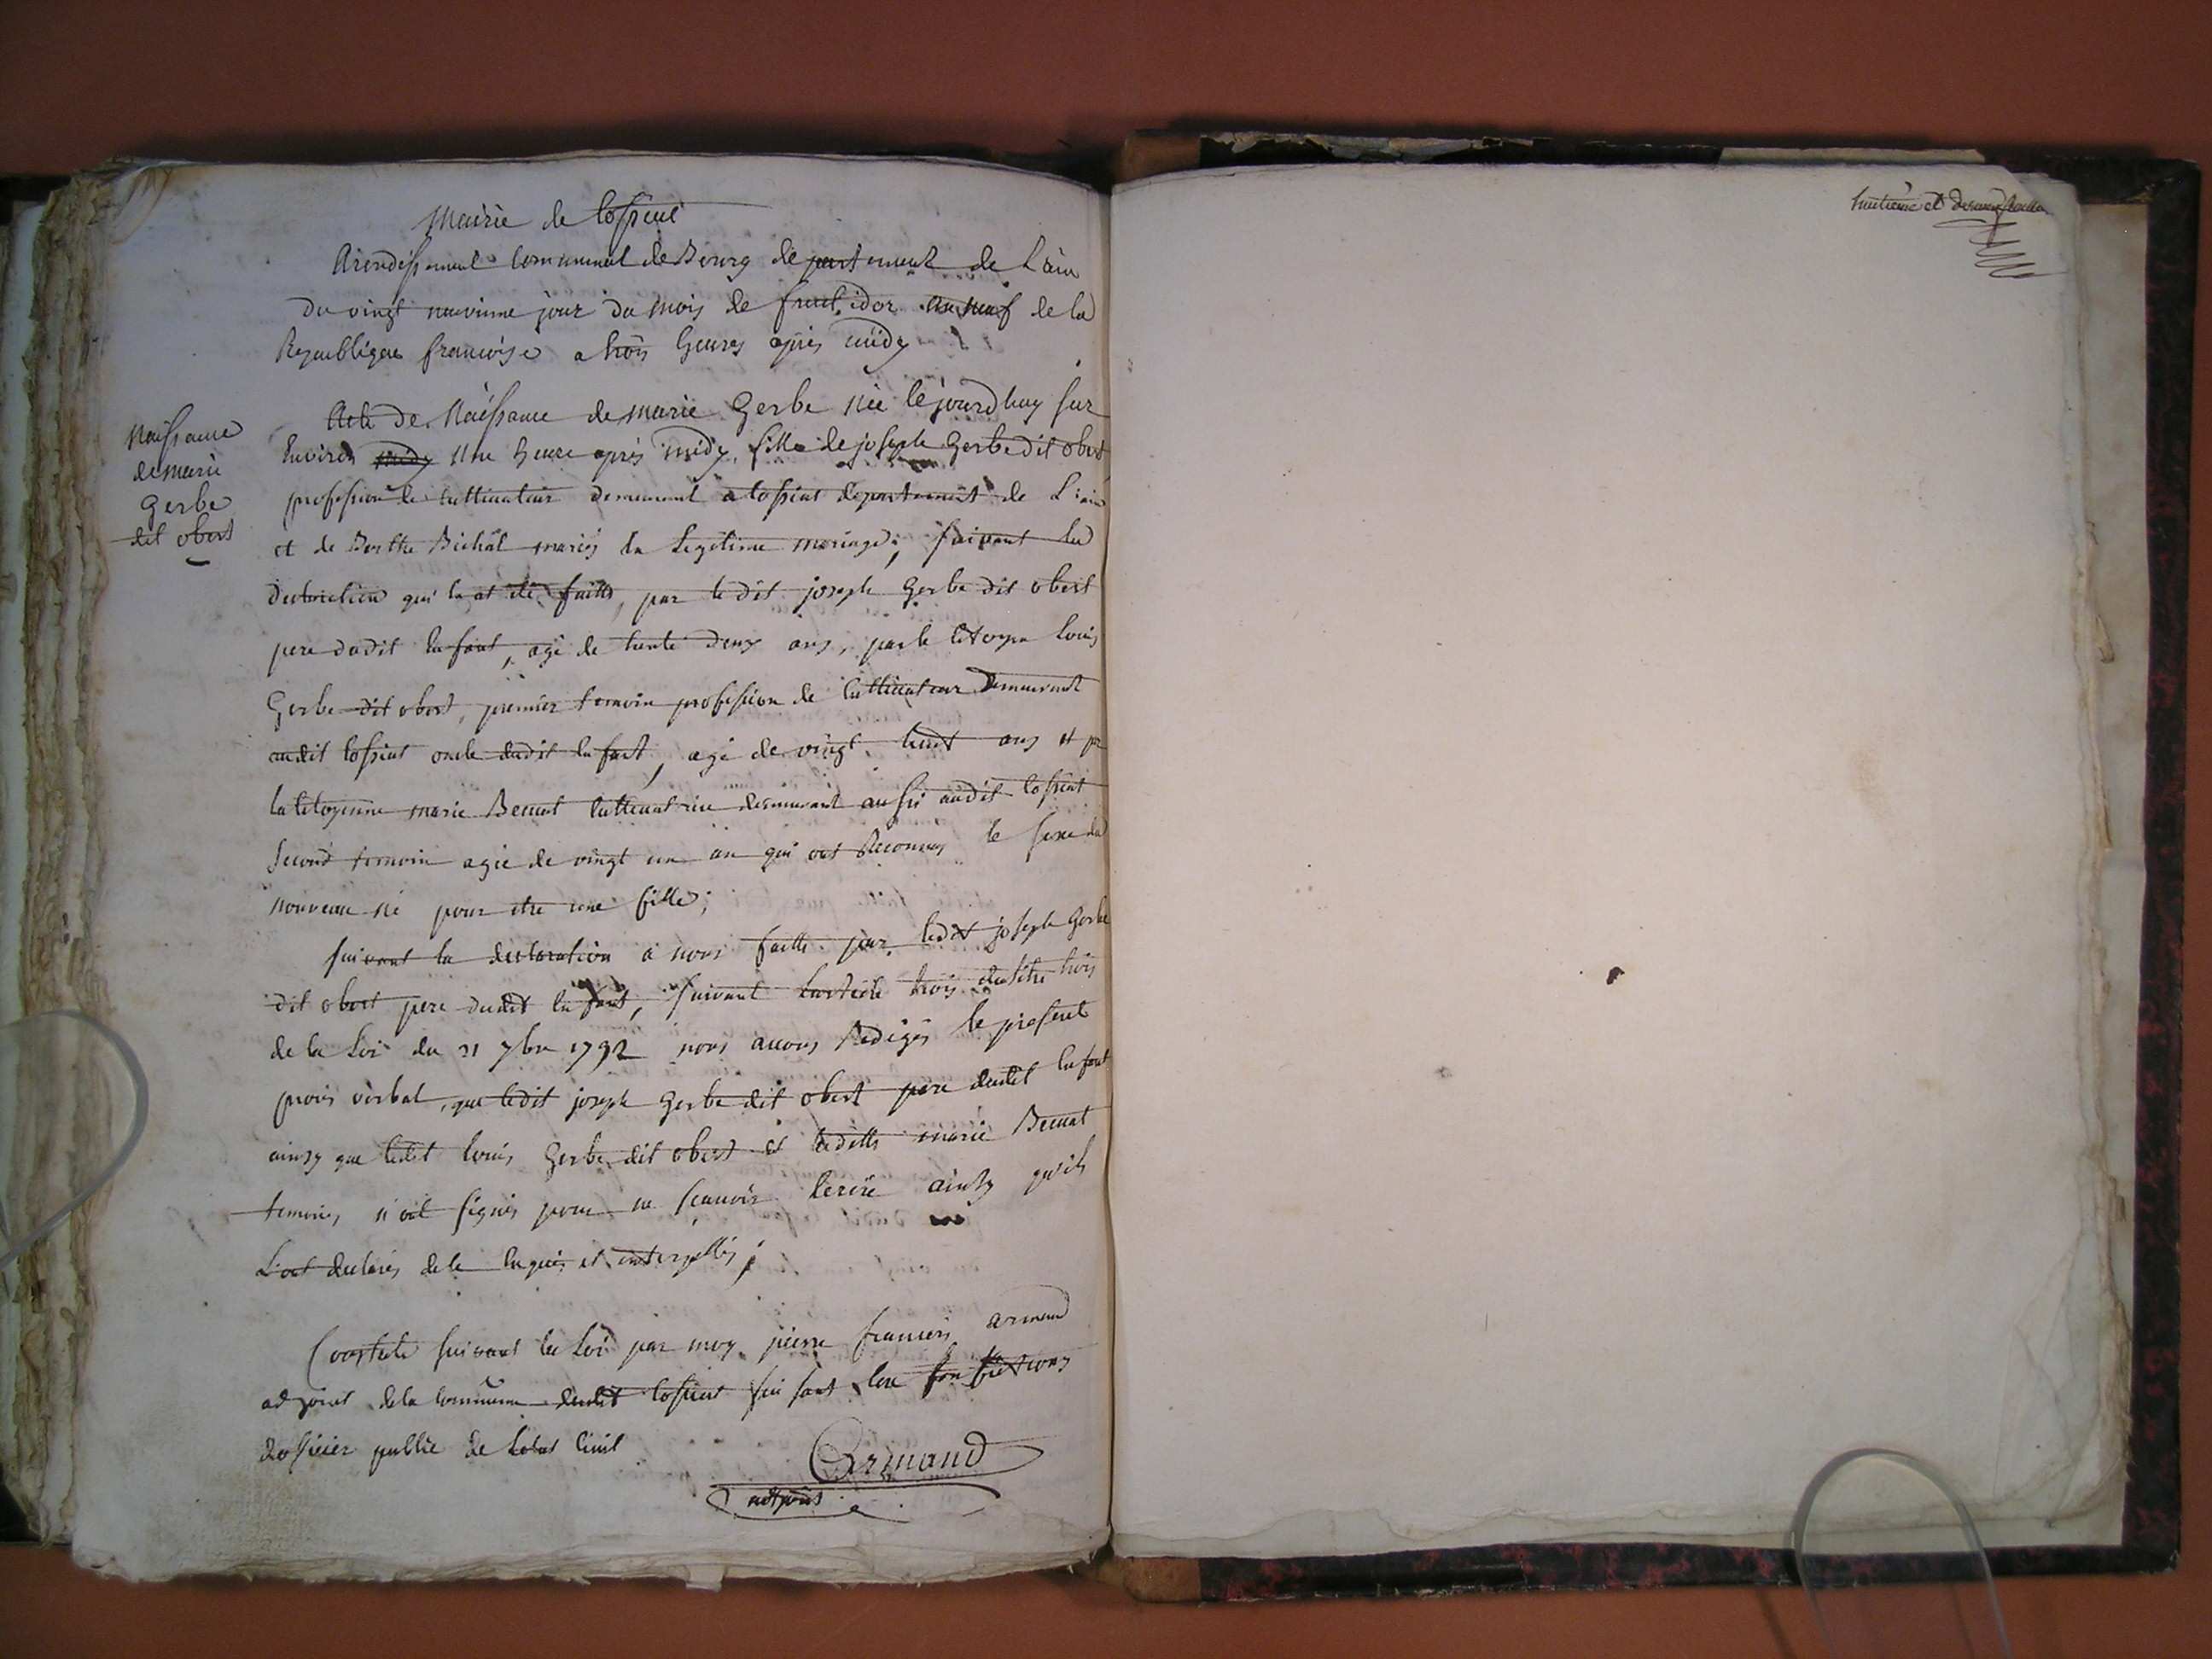 Mairie de Cossieut
Arondissement Communal de Bourg departement de L'ain
du vingt neuvinne jour du mois de fructidor an neuf de la
Republique françoise a trois heures après midy
Acte de Naissance de marie Gerbe née lejourdhuy sur
Naissance
de marie
Gerbe
dit obert
Environ midy Une heure après midy, fille de joseph Gerbe dit obert
profession de Cultivateur demeurant a Cossieut departement de L'ain
et de Berthe Bichat mariés En Legitime mariage, suivant la
declaration qui en at été faitte, par le dit joseph Gerbe dit obert
pere dudit Enfant, agé de trente deux ans, par le Citoyen Louis
Gerbe dit obert, premier temoin profession de Cultivateur Demeurant
audit Cossieut oncle dudit Enfant, agé de vingt huit ans et par
la Citoyenne marie Benuat Cultivatrice demeurant aussi audit Cossieut
second temoin agée de vingt un an qui ont Reconnus le sexe du
nouveau né pour etre une fille;
suivant la declaration a nous faitte par ledit joseph Gerbe
dit obert pere dudit Enfant, suivant Larticle trois du titre trois
de la Loi du 21 7bre 1792 nous avons Redigés le present
procès verbal, que ledit joseph Gerbe dit obert pere dudit Enfant
ainsy que ledit Louis Gerbe dit obert et ladette marie Benuat
temoins n'ont signés pour ne sçauvoir Écrire ainsy qu'ils
L'ont declarés de ce Enquis et interpellés;
Constaté suivant la Loi par moy pierre francois armand
adjoint de la commune dudit Cossieut faisant les fonctions
dofficier public de Letat Civil
Armand
adjoint
huitieme et derniere feuille